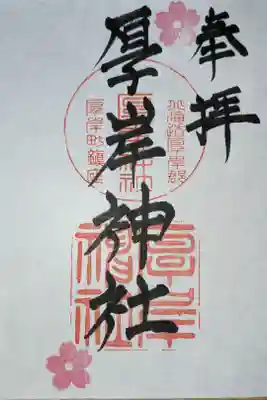 奉拝
北海道厚岸郡
厚岸神社
厚岸町鎮座
厚岸神社